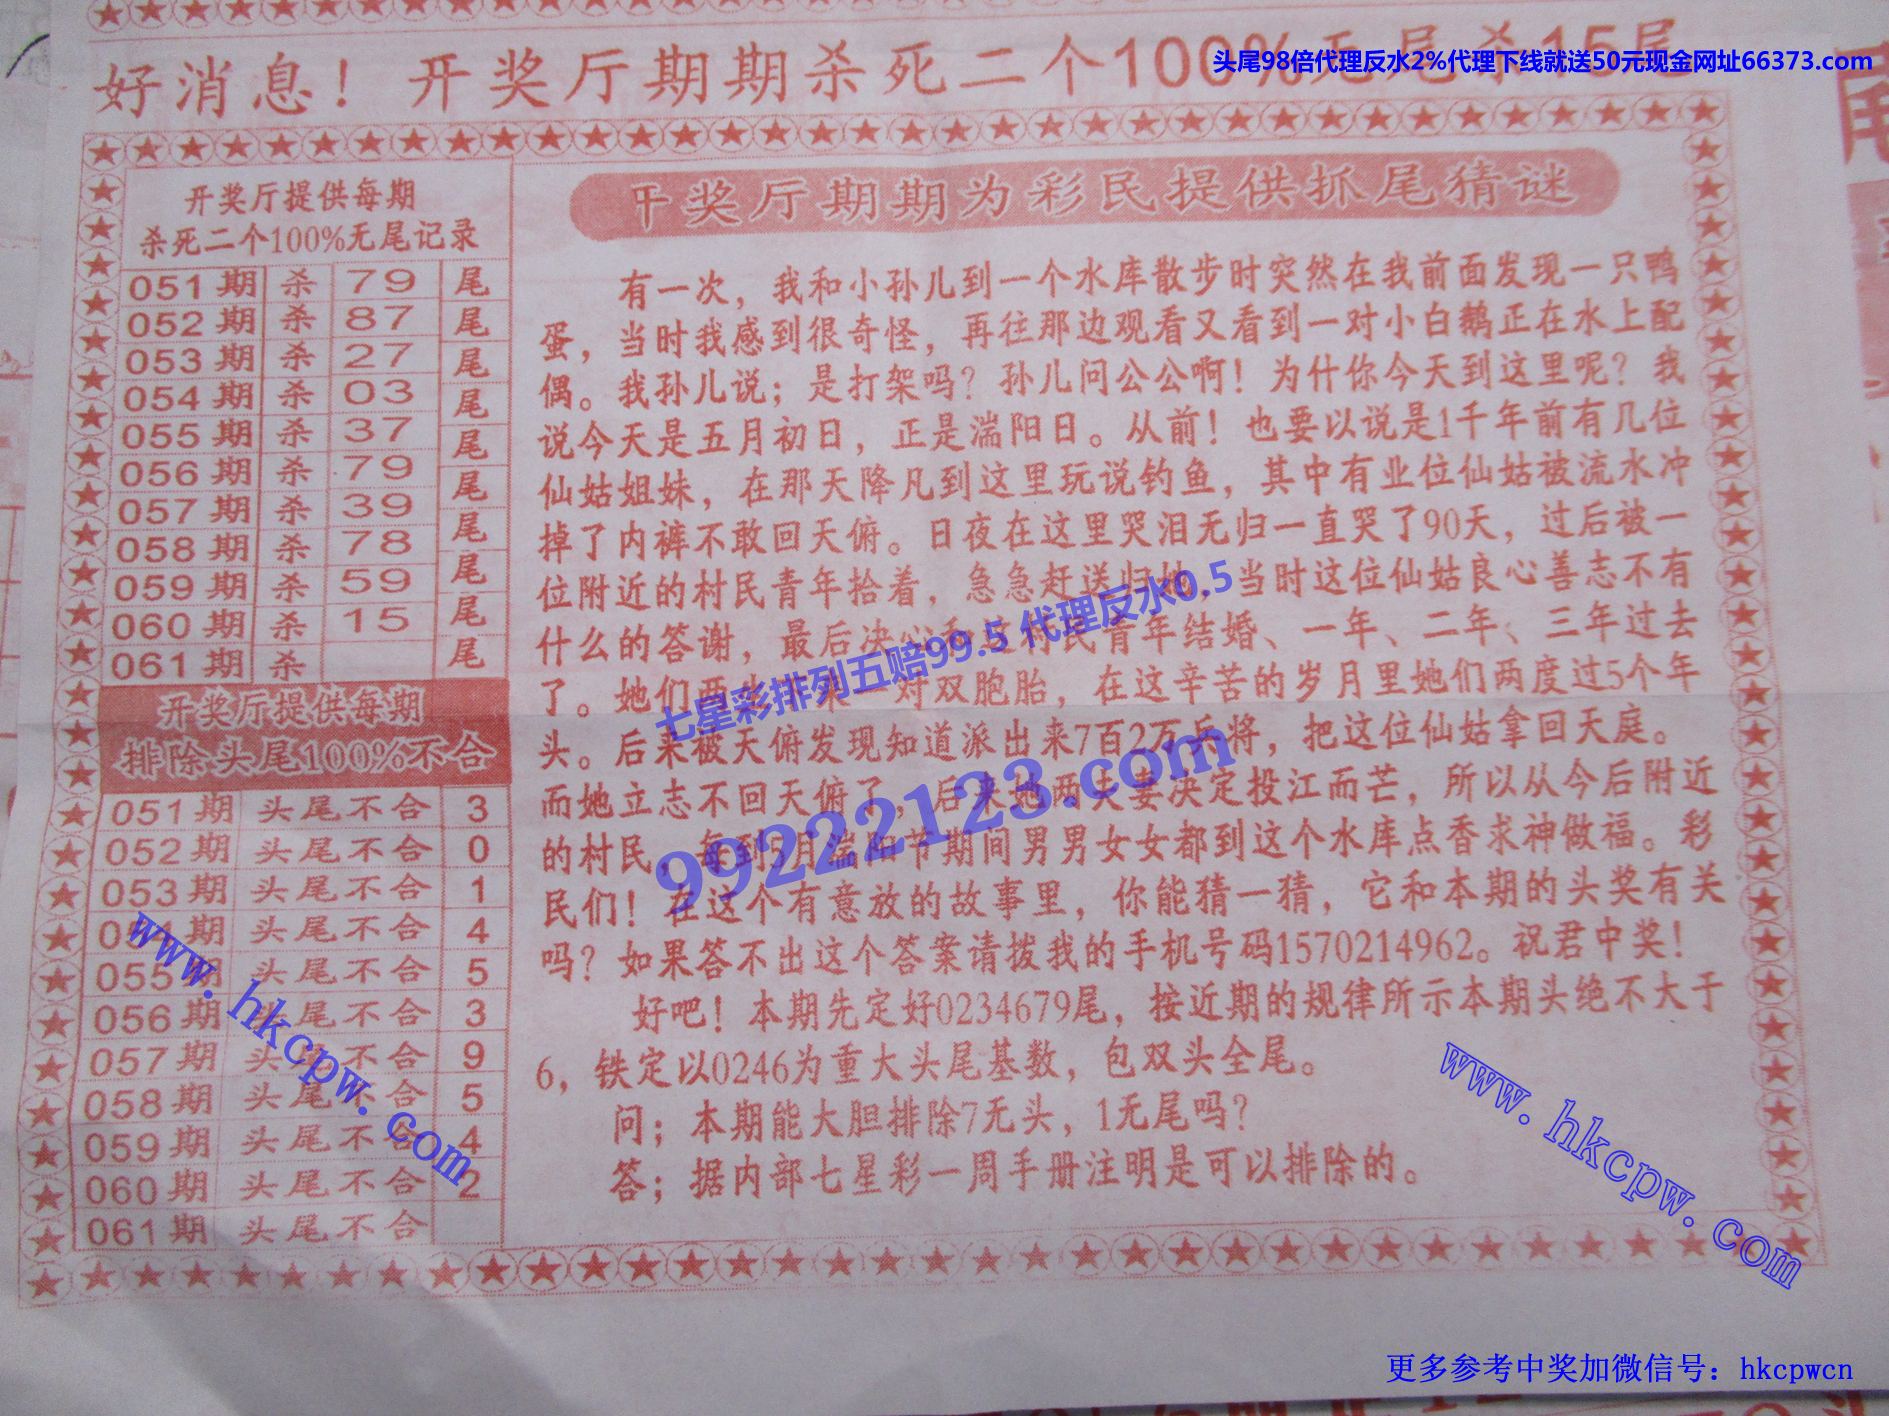 好消息！开奖厅期期杀死二个100%无尾杀15尾
头尾98倍代理反水2%代理下线就送50元现金网址66373.com
开奖厅提供每期
杀死二个100%无尾记录
051期 杀 79 尾
052期 杀 87 尾
053期 杀 27 尾
054期 杀 03 尾
055期 杀 37 尾
056期 杀 79 尾
057期 杀 39 尾
058期 杀 78 尾
059期 杀 59 尾
060期 杀 15 尾
061期 杀 尾
开奖厅提供每期
排除头尾100%不合
051期 头尾不合 3
052期 头尾不合 0
053期 头尾不合 1
期 头尾不合 4
055期 头尾不合 5
056期 头尾不合 3
057期 头尾不合 9
058期 头尾不合 5
059期 头尾不合 4
060期 头尾不合 2
061期 头尾不合
开奖厅期期为彩民提供抓尾猜谜
有一次，我和小孙儿到一个水库散步时突然在我前面发现一只鸭
蛋，当时我感到很奇怪，再往那边观看又看到一对小白鹅正在水上配
偶。我孙儿说；是打架吗？孙儿问公公啊！为什你今天到这里呢？我
说今天是五月初日，正是湍阳日。从前！也要以说是1千年前有几位
仙姑姐妹，在那天降凡到这里玩说钓鱼，其中有业位仙姑被流水冲
掉了内裤不敢回天俯。日夜在这里哭泪无归一直哭了90天，过后被一
位附近的村民青年拾着，急急赶送归她，当时这位仙姑良心善志不有
什么的答谢，最后决心和 村民青年结婚、一年、二年、三年过去
了。她们两 对双胞胎，在这辛苦的岁月里她们两度过5个年
头。后来被天俯发现知道派出来7百2万兵将，把这位仙姑拿回天庭。
而她立志不回天俯了，后来她两夫妻决定投江而芒，所以从今后附近
的村民，每到5月湍阳节期间男男女女都到这个水库点香求神做福。彩
民们！在这个有意放的故事里，你能猜一猜，它和本期的头奖有关
吗？如果答不出这个答案请拨我的手机号码1570214962。祝君中奖！
好吧！本期先定好0234679尾，按近期的规律所示本期头绝不大于
6，铁定以0246为重大头尾基数，包双头全尾。
问；本期能大胆排除7无头，1无尾吗？
答；据内部七星彩一周手册注明是可以排除的。
七星彩排列五赔99.5 代理反水0.5
99222123.com
www.hkcpw.com
www.hkcpw.com
更多参考中奖加微信号：hkcpwcn